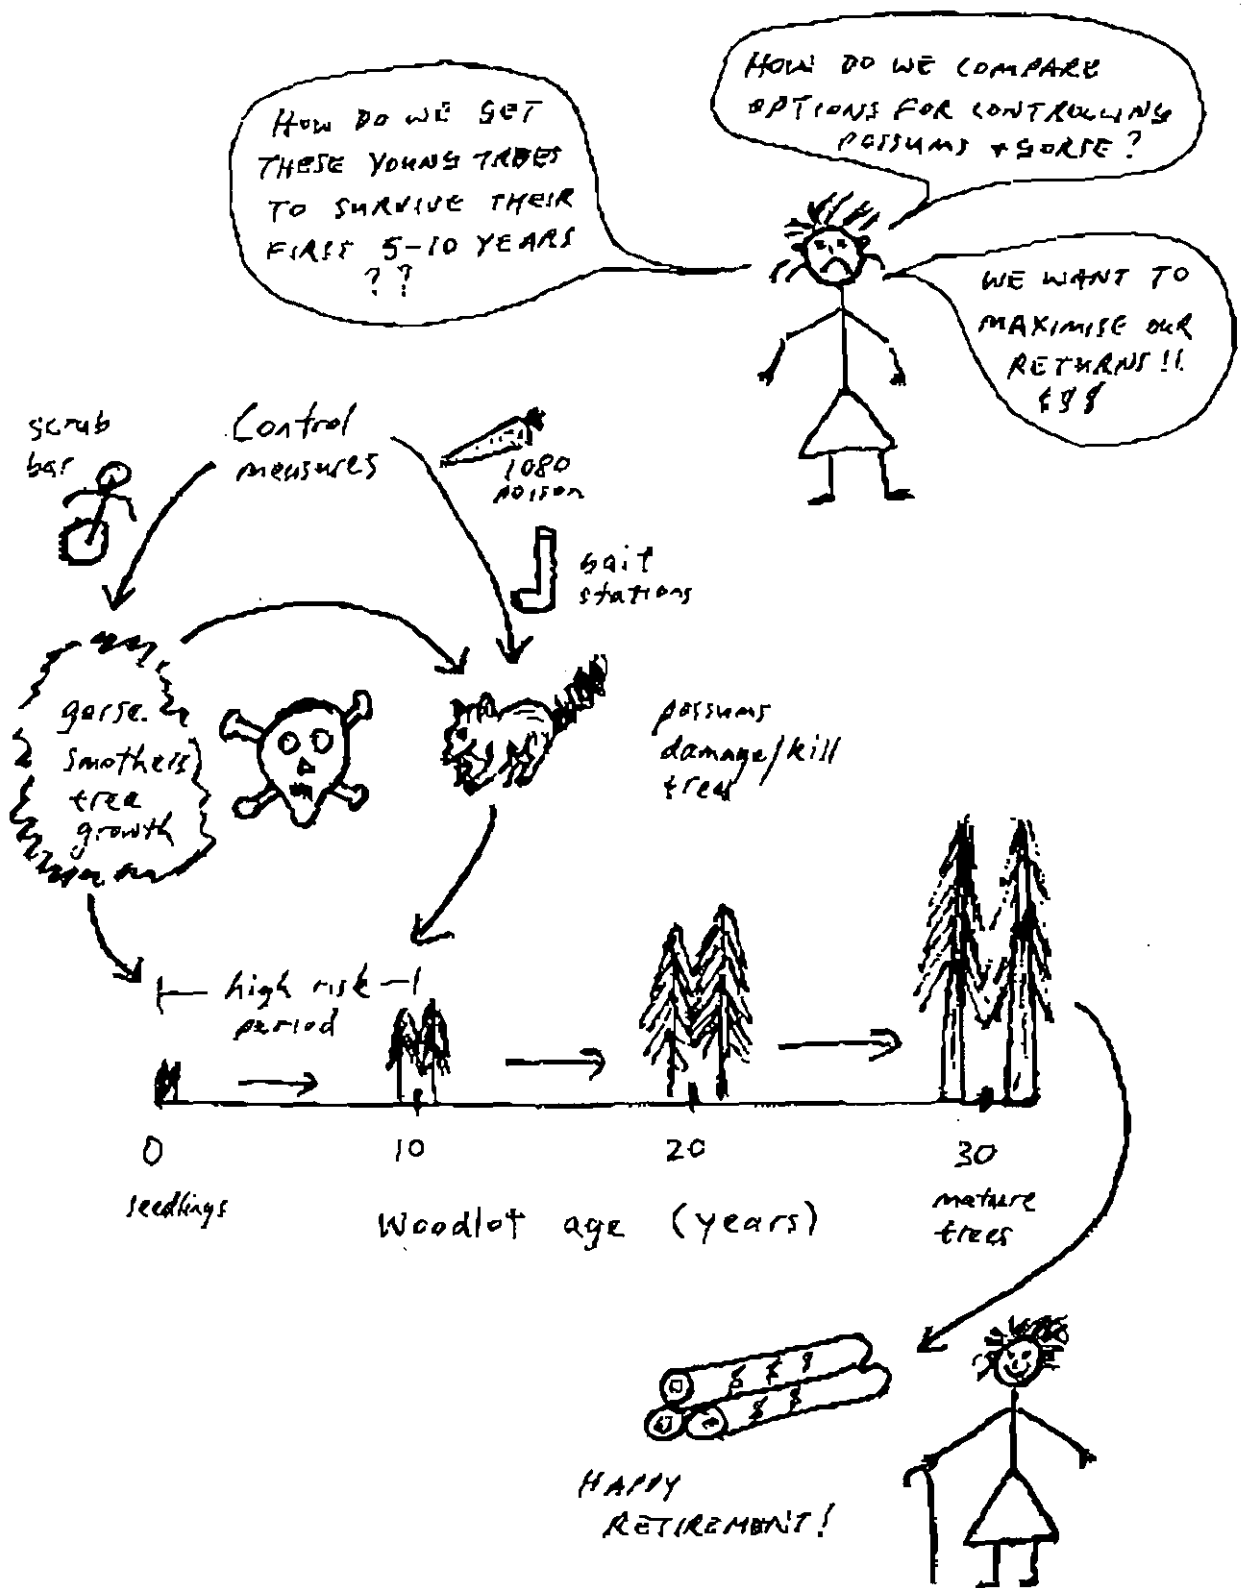 HOW DO WE GET
THESE YOUNG TREES
TO SURVIVE THEIR
FIRST 5-10 YEARS
??
HOW DO WE COMPARE
OPTIONS FOR CONTROLLING
POSSUMS + GORSE?
WE WANT TO
MAXIMISE OUR
RETURNS!!
$$$
scrub
bar
Control
measures
1080
poison
bait
stations
gorse
smothers
tree
growth
possums
damage/kill
trees
high risk
period
0
10
20
30
seedlings
Woodlot age (years)
mature
trees
$ $ $
$ $
HAPPY
RETIREMENT!